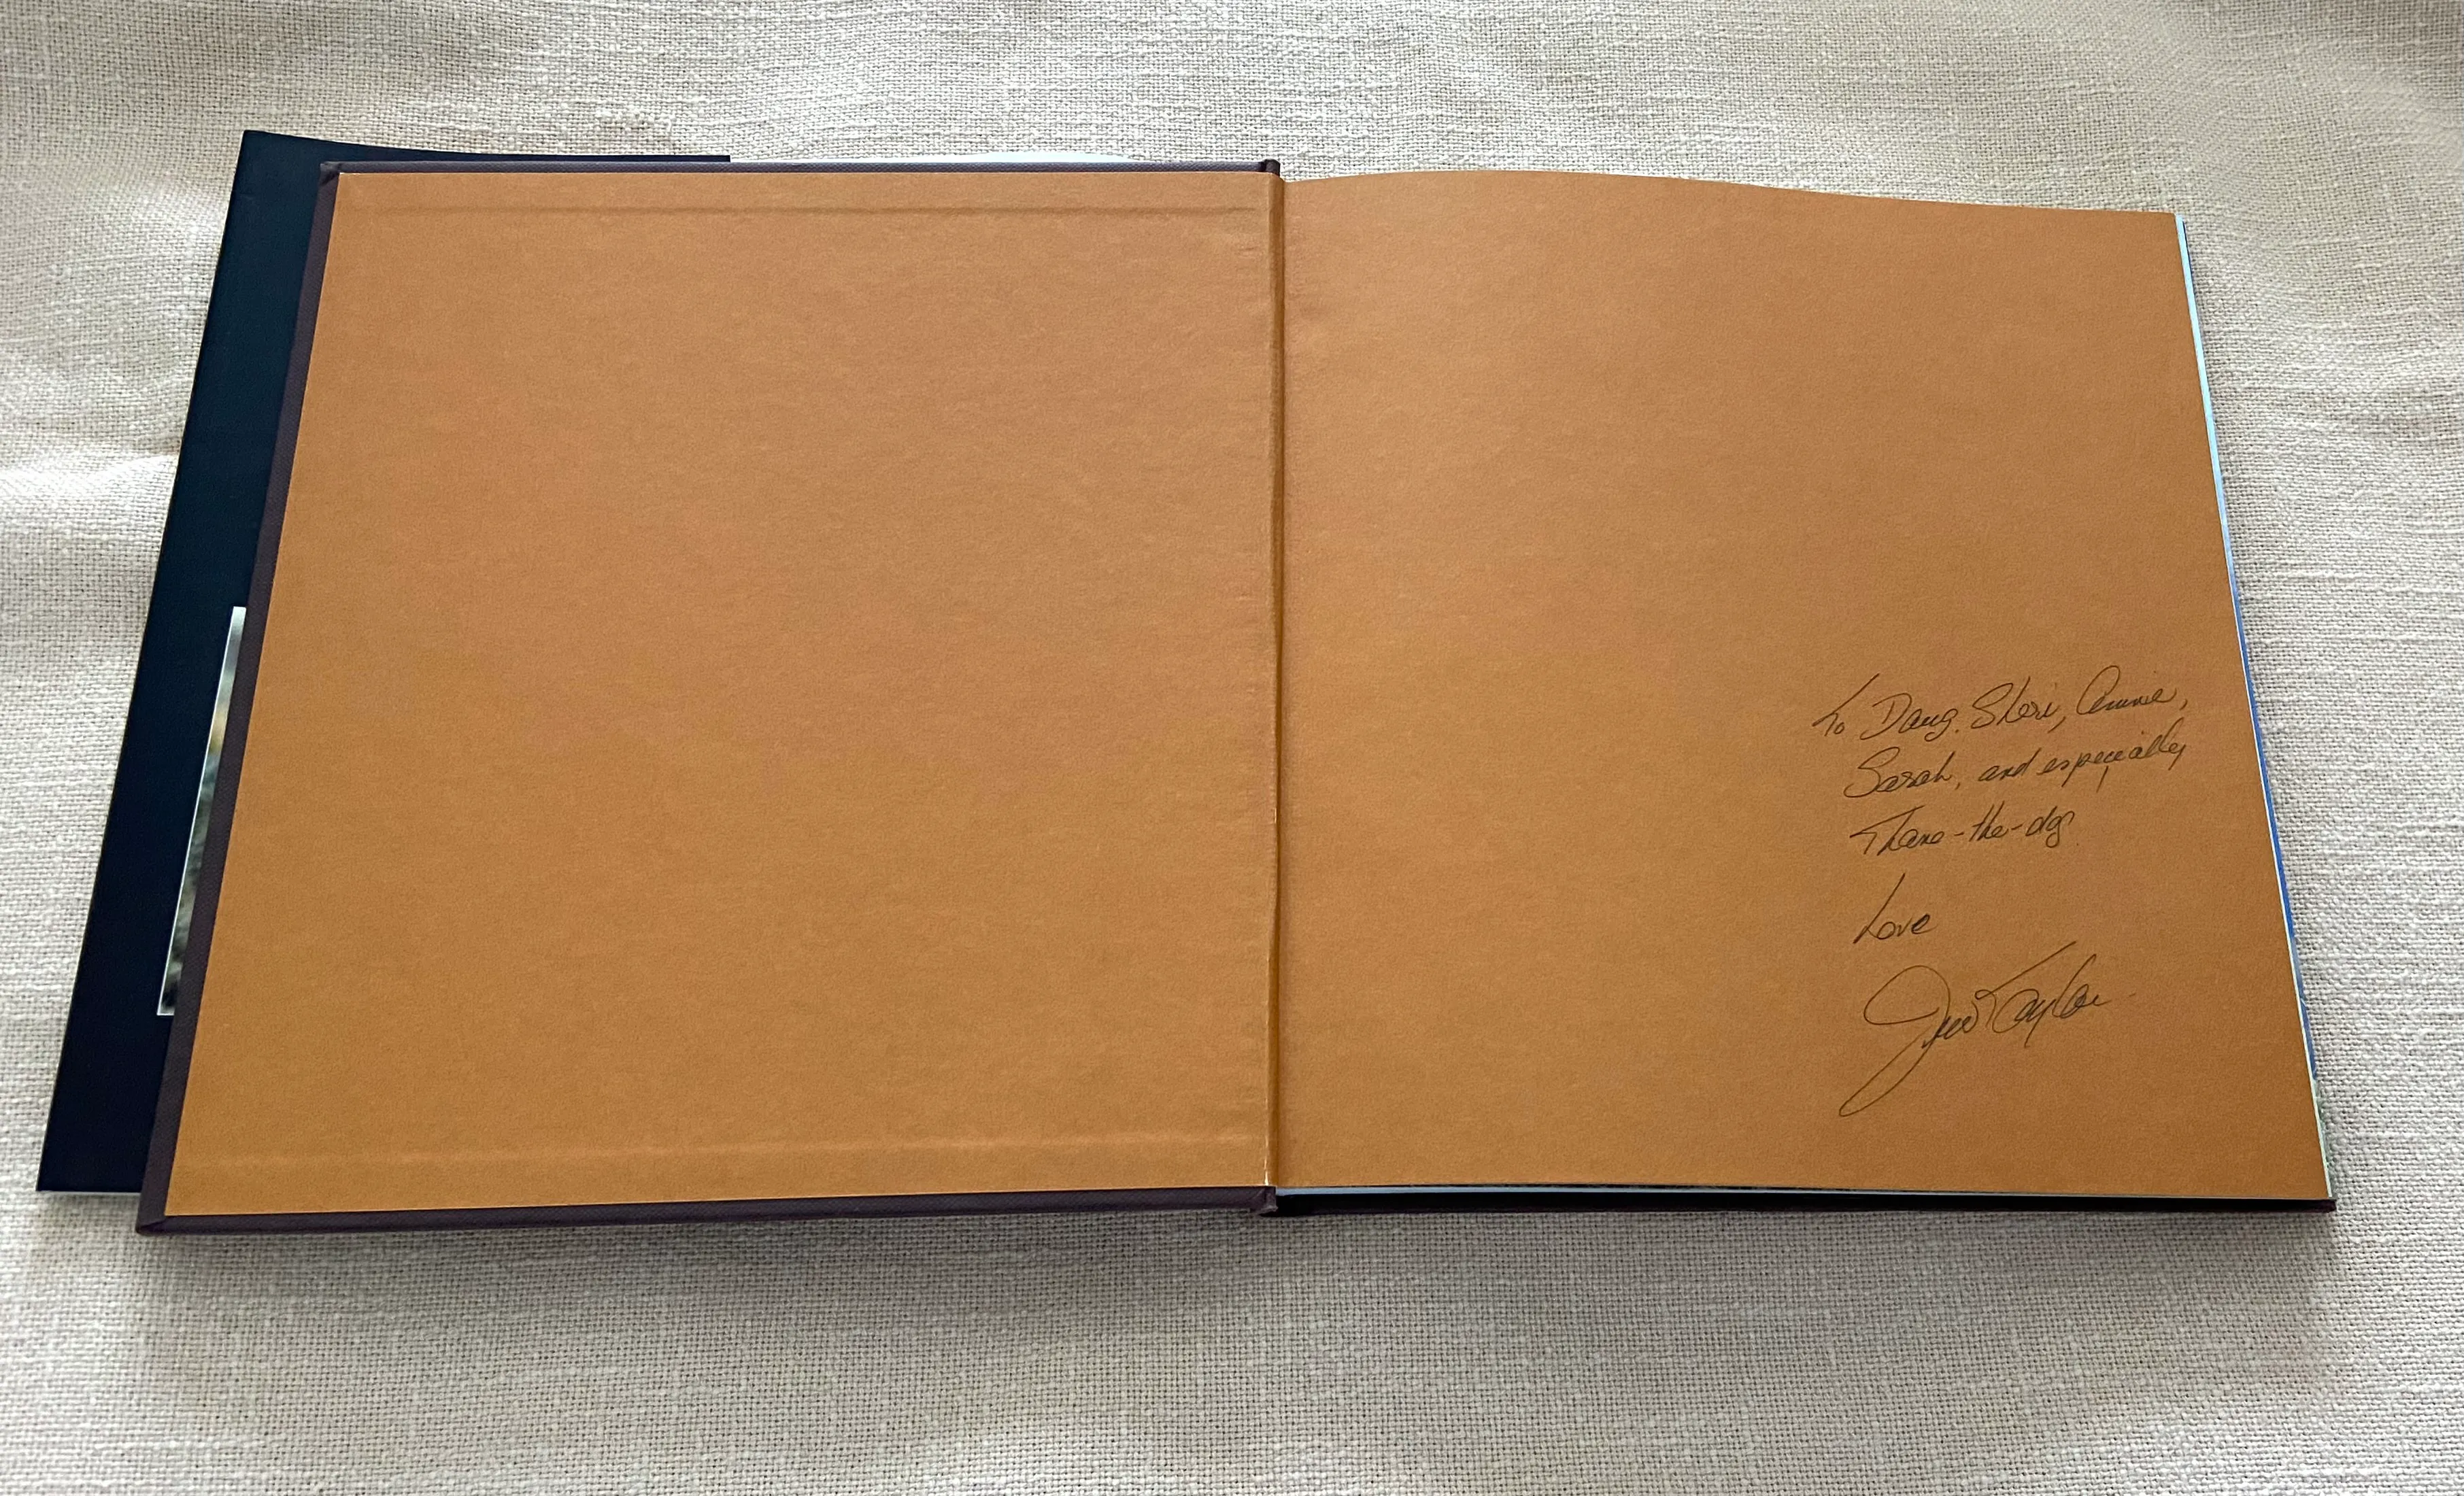 To Doug, Sheri, Annie,
Sarah, and especially
Thane-the-dog.
Love
Jim Taylor